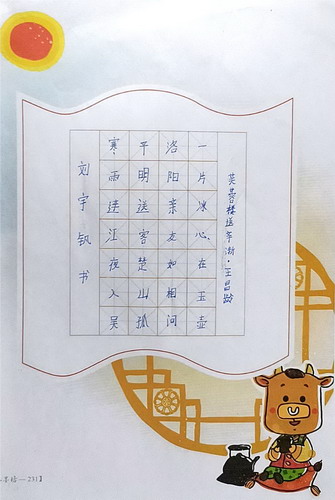 芙蓉楼送辛渐·王昌龄
一片冰心在玉壶
洛阳亲友如相问
平明送客楚山孤
寒雨连江夜入吴
刘宇钒书
—231】